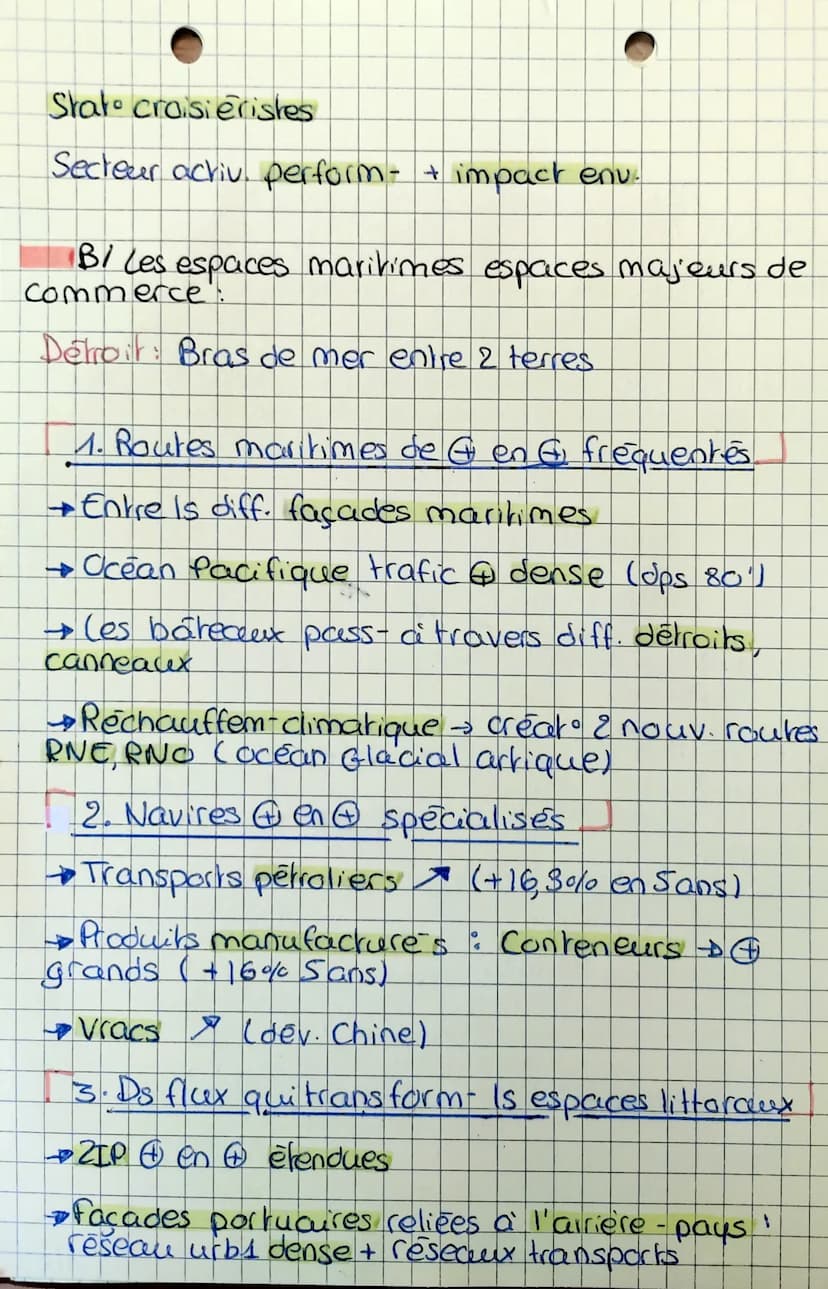 Stat° croisiéristes
Secteur activ. perform- + impact env.
B/ Les espaces maritimes espaces majeurs de
commerce :
Détroit : Bras de mer entre 2 terres
1. Routes maritimes de ⊕ en ⊕ fréquentés
→ Entre ls diff. façades maritimes
→ Océan Pacifique trafic ⊕ dense (dps 80')
→ Les bâteaux pass- à travers diff. détroits,
canneaux
→ Réchauffem- climatique → créat° 2 nouv. routes
RNE, RNO (océan Glacial artique)
2. Navires ⊕ en ⊕ spécialisés
→ Transports pétroliers ↗ (+16,3% en 5ans)
→ Produits manufacturés : Conteneurs → ⊕
grands (+16% 5ans)
→ Vracs ↗ (dév. Chine)
3. Ds flux qui transform- ls espaces littoraux
→ ZIP ⊕ en ⊕ étendues
→ façades portuaires reliées à l'arrière-pays :
réseau urb1 dense + réseaux transports